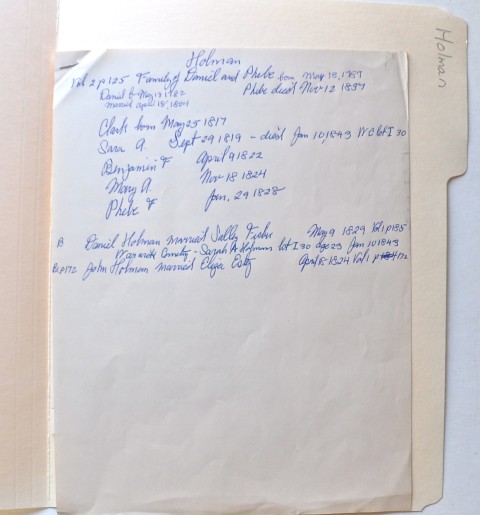 Holman
Holman
Vol 2 p 125 Family of Daniel and Phebe born May 18, 1787
Daniel b May 17, 1782 Phebe died Nov 12 1857
married april 18, 1804
Clark born May 25 1817
Sara A. Sept 29 1819 - died Jan 10, 1843 W C lot I 30
Benjamin F April 9 1822
Mary A. Nov 18 1824
Phebe F Jan. 29 1828
B Daniel Holman married Sally Fisher May 9 1829 Vol 1 p185
Cemetry - Sarah A Holman lot I 30 age 23 Jan 10 1843
p172 John Holman married Eliza Esty April 8 1824 Vol 1 p 172